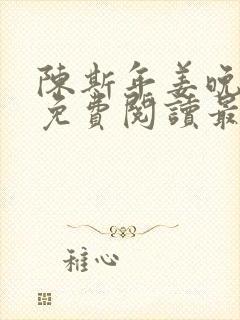 陳斯年姜晚
免費閱讀最
稚心